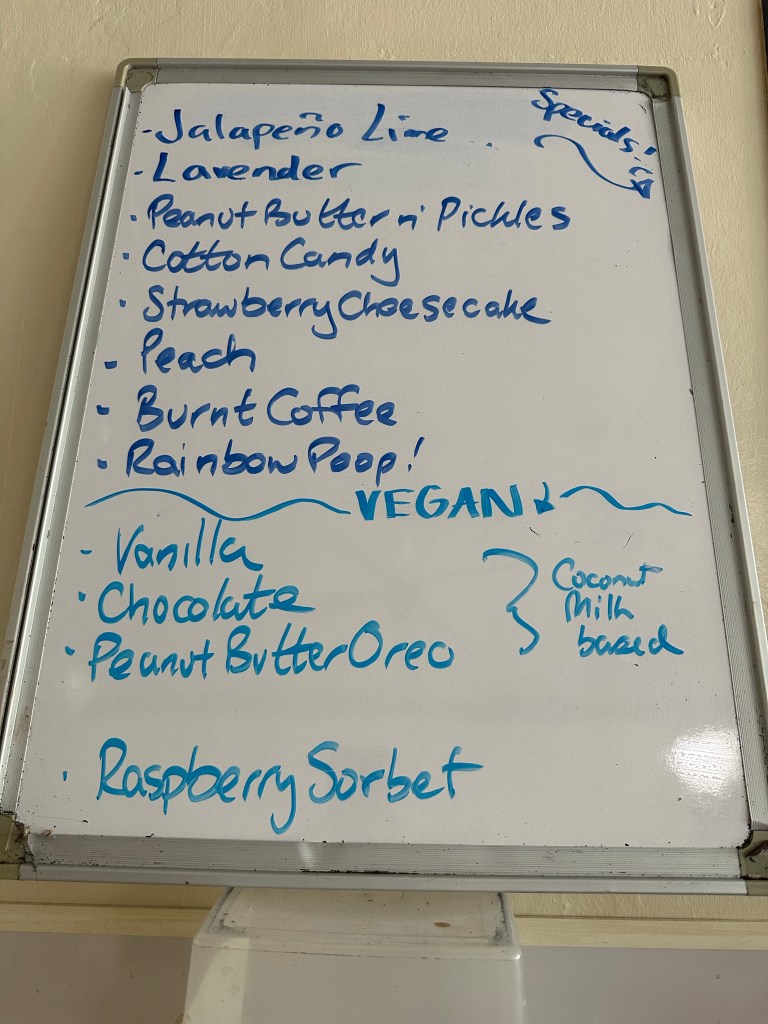 Specials!
- Jalapeño Lime
- Lavender
· Peanut Butter n' Pickles
· Cotton Candy
· Strawberry Cheesecake
- Peach
- Burnt Coffee
· Rainbow Poop!
VEGAN
- Vanilla
· Chocolate
· Peanut Butter Oreo
Coconut
Milk
based
· Raspberry Sorbet